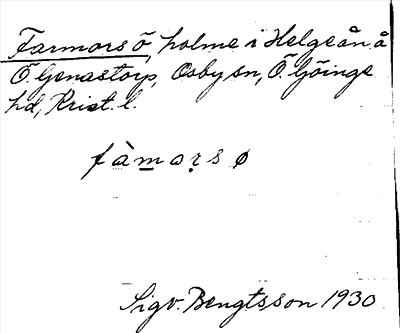 Farmors ö, holme i Helgeån å
Ö Genastorp, Osby sn, Ö. Göinge
hd, Krist. l.
fàmạrs ø
Sigv. Bengtsson 1930